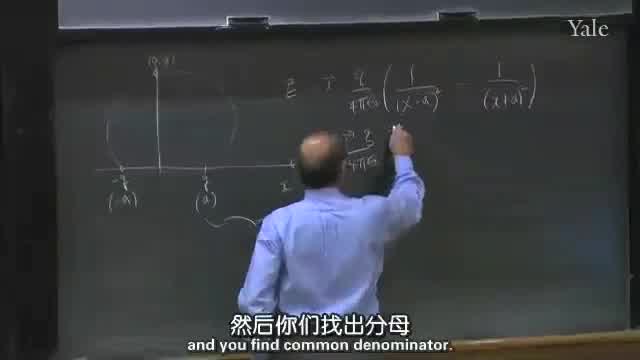 Yale
(0, a)
E = i q/4πε₀ ( 1/(x-a)² - 1/(x+a)² )
i q/4πε₀
-q q x
(-a) (a)
然后你们找出分母
and you find common denominator.